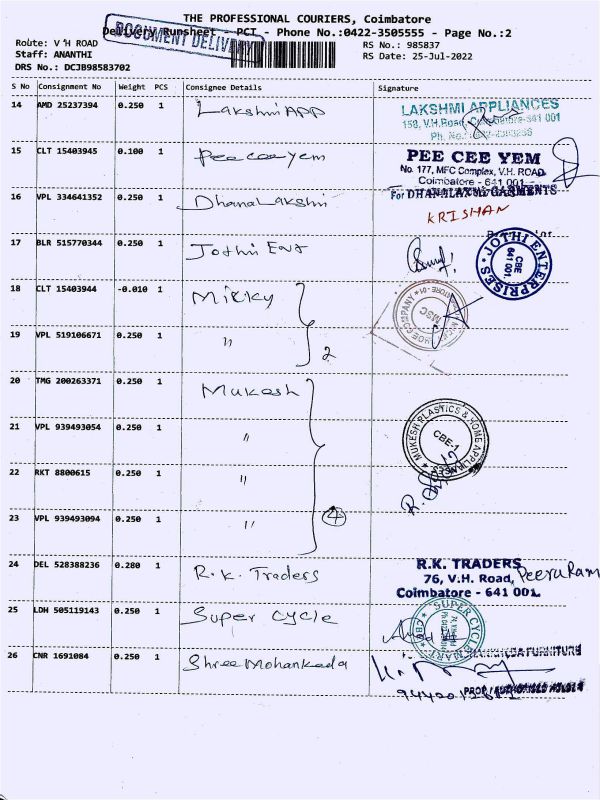 THE PROFESSIONAL COURIERS, Coimbatore
Delivery Runsheet - PCT - Phone No.:0422-3505555 - Page No.:2
DOCUMENT DELIVERY
Route: V H ROAD
RS No.: 985837
Staff: ANANTHI
RS Date: 25-Jul-2022
DRS No.: DCJB98583702
S No Consignment No Weight PCS Consignee Details Signature
14 AMD 25237394 0.250 1 Lakshmi APP
LAKSHMI APPLIANCES
158, V.H.Road, Coimbatore-641 001
Ph. No.:
15 CLT 15403945 0.100 1 Pee cee yem
PEE CEE YEM
No. 177, MFC Complex, V.H. ROAD
Coimbatore - 641 001
16 VPL 334641352 0.250 1 Dhana Lakshmi
For DHANALAXMI GARMENTS
KRISHAN
17 BLR 515770344 0.250 1 Jothi Ent
JOTHI ENTERPRISES
CBE
641 001.
18 CLT 15403944 -0.010 1 Micky
MSC
19 VPL 519106671 0.250 1 "
2
20 TMG 200263371 0.250 1 Mukesh
21 VPL 939493054 0.250 1 "
MUKESH PLASTICS & HOME APPLIANCES
CBE-1
22 RKT 8800615 0.250 1 "
23 VPL 939493094 0.250 1 "
4
24 DEL 528388236 0.280 1 R.K. Traders
R.K. TRADERS
76, V.H. Road,
Coimbatore - 641 001.
PeeruRam
25 LDH 505119143 0.250 1 Super cycle
SUPER CYCLE MART
26 CNR 1691084 0.250 1 Shree Mohankada
FURNITURE